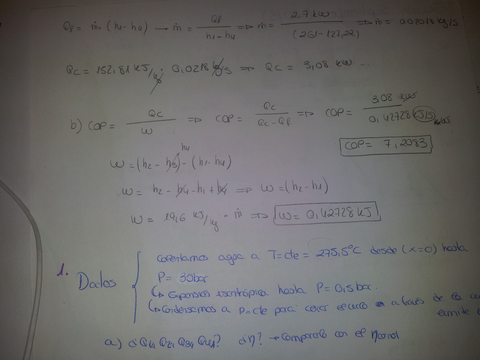 Qf = ṁ (h1 - h4) → ṁ = Qf / (h1 - h4) ⇒ ṁ = 2,7 kW / (251 - 127,22) ⇒ ṁ = 0,0218 kg/s
Qc = 152,81 kJ/kg · 0,0218 kg/s ⇒ Qc = 3,08 kW.
b) COP = Qc / W ⇒ COP = Qc / (Qc - Qf) ⇒ COP = 3,08 kW / 0,42728
COP = 7,2083
W = (h2 - h3) - (h1 - h4)
h4
W = h2 - h4 - h1 + h4 ⇒ W = (h2 - h1)
W = 19,6 kJ/kg · ṁ ⇒ W = 0,42728 kJ
1. Datos
calentamos agua a T = cte = 275,5°C desde (x=0) hasta
P = 30 bar
↳ Expansión isentrópica hasta P = 0,5 bar.
↳ Condensamos a P = cte para cerrar el ciclo a través de
a) ¿Q12 Q23 Q34 Q41? ¿η? → Compararlo con el